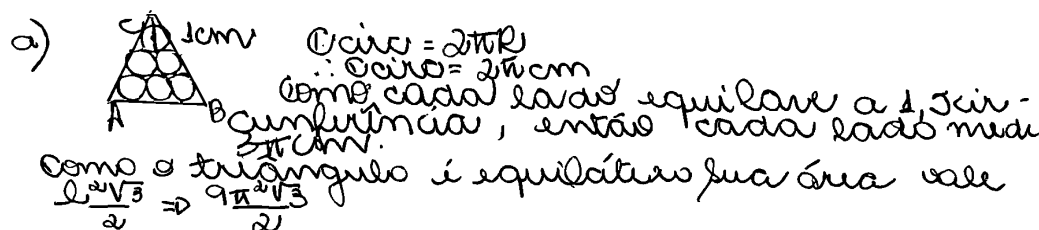 a) C 1cm Ccirc = 2πR
∴ Ccirc = 2π cm
A B como cada lado equilave a 1,5 cir-
cunferência, então cada lado medi
3π cm.
como o triângulo é equilátero sua área vale
l²√3/2 ⇒ 9π²√3/2